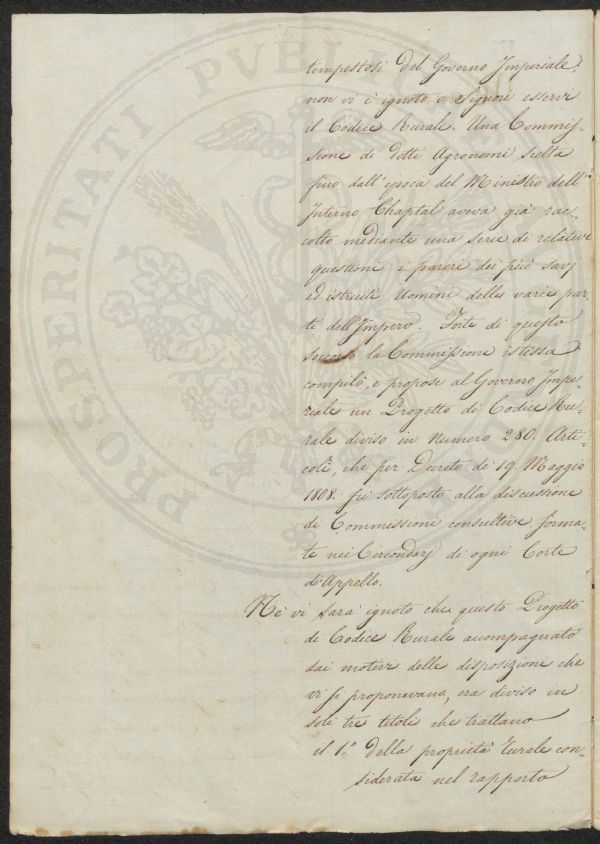 tempestosi del Governo Imperiale,
non vi è ignoto o Signori esservi
il Codice Rurale. Una Commis-
sione di dotti Agronomi scelta
fino dall'epoca del Ministro dell'
Interno Chaptal aveva già rac-
colto mediante una serie di relative
questioni i pareri dei più savj
ed istruiti Uomini delle varie par-
ti dell'Impero. Forte di questo
soccorso la Commissione istessa
compilò, e propose al Governo Impe-
riale un Progetto di Codice Ru-
rale diviso in Numero 280. Arti-
coli, che per Decreto de' 19. Maggio
1808. fù sottoposto alla discussione
di Commissioni consultive forma-
te nei Circondarj di ogni Corte
di Appello.
Nè vi sarà ignoto che questo Progetto
di Codice Rurale accompagnato
dai motivi delle disposizione che
vi si proponevano, era diviso in
soli tre titoli che trattano
il 1.° della proprietà rurale con-
siderata nel rapporto
PROSPERITATI PVBLI